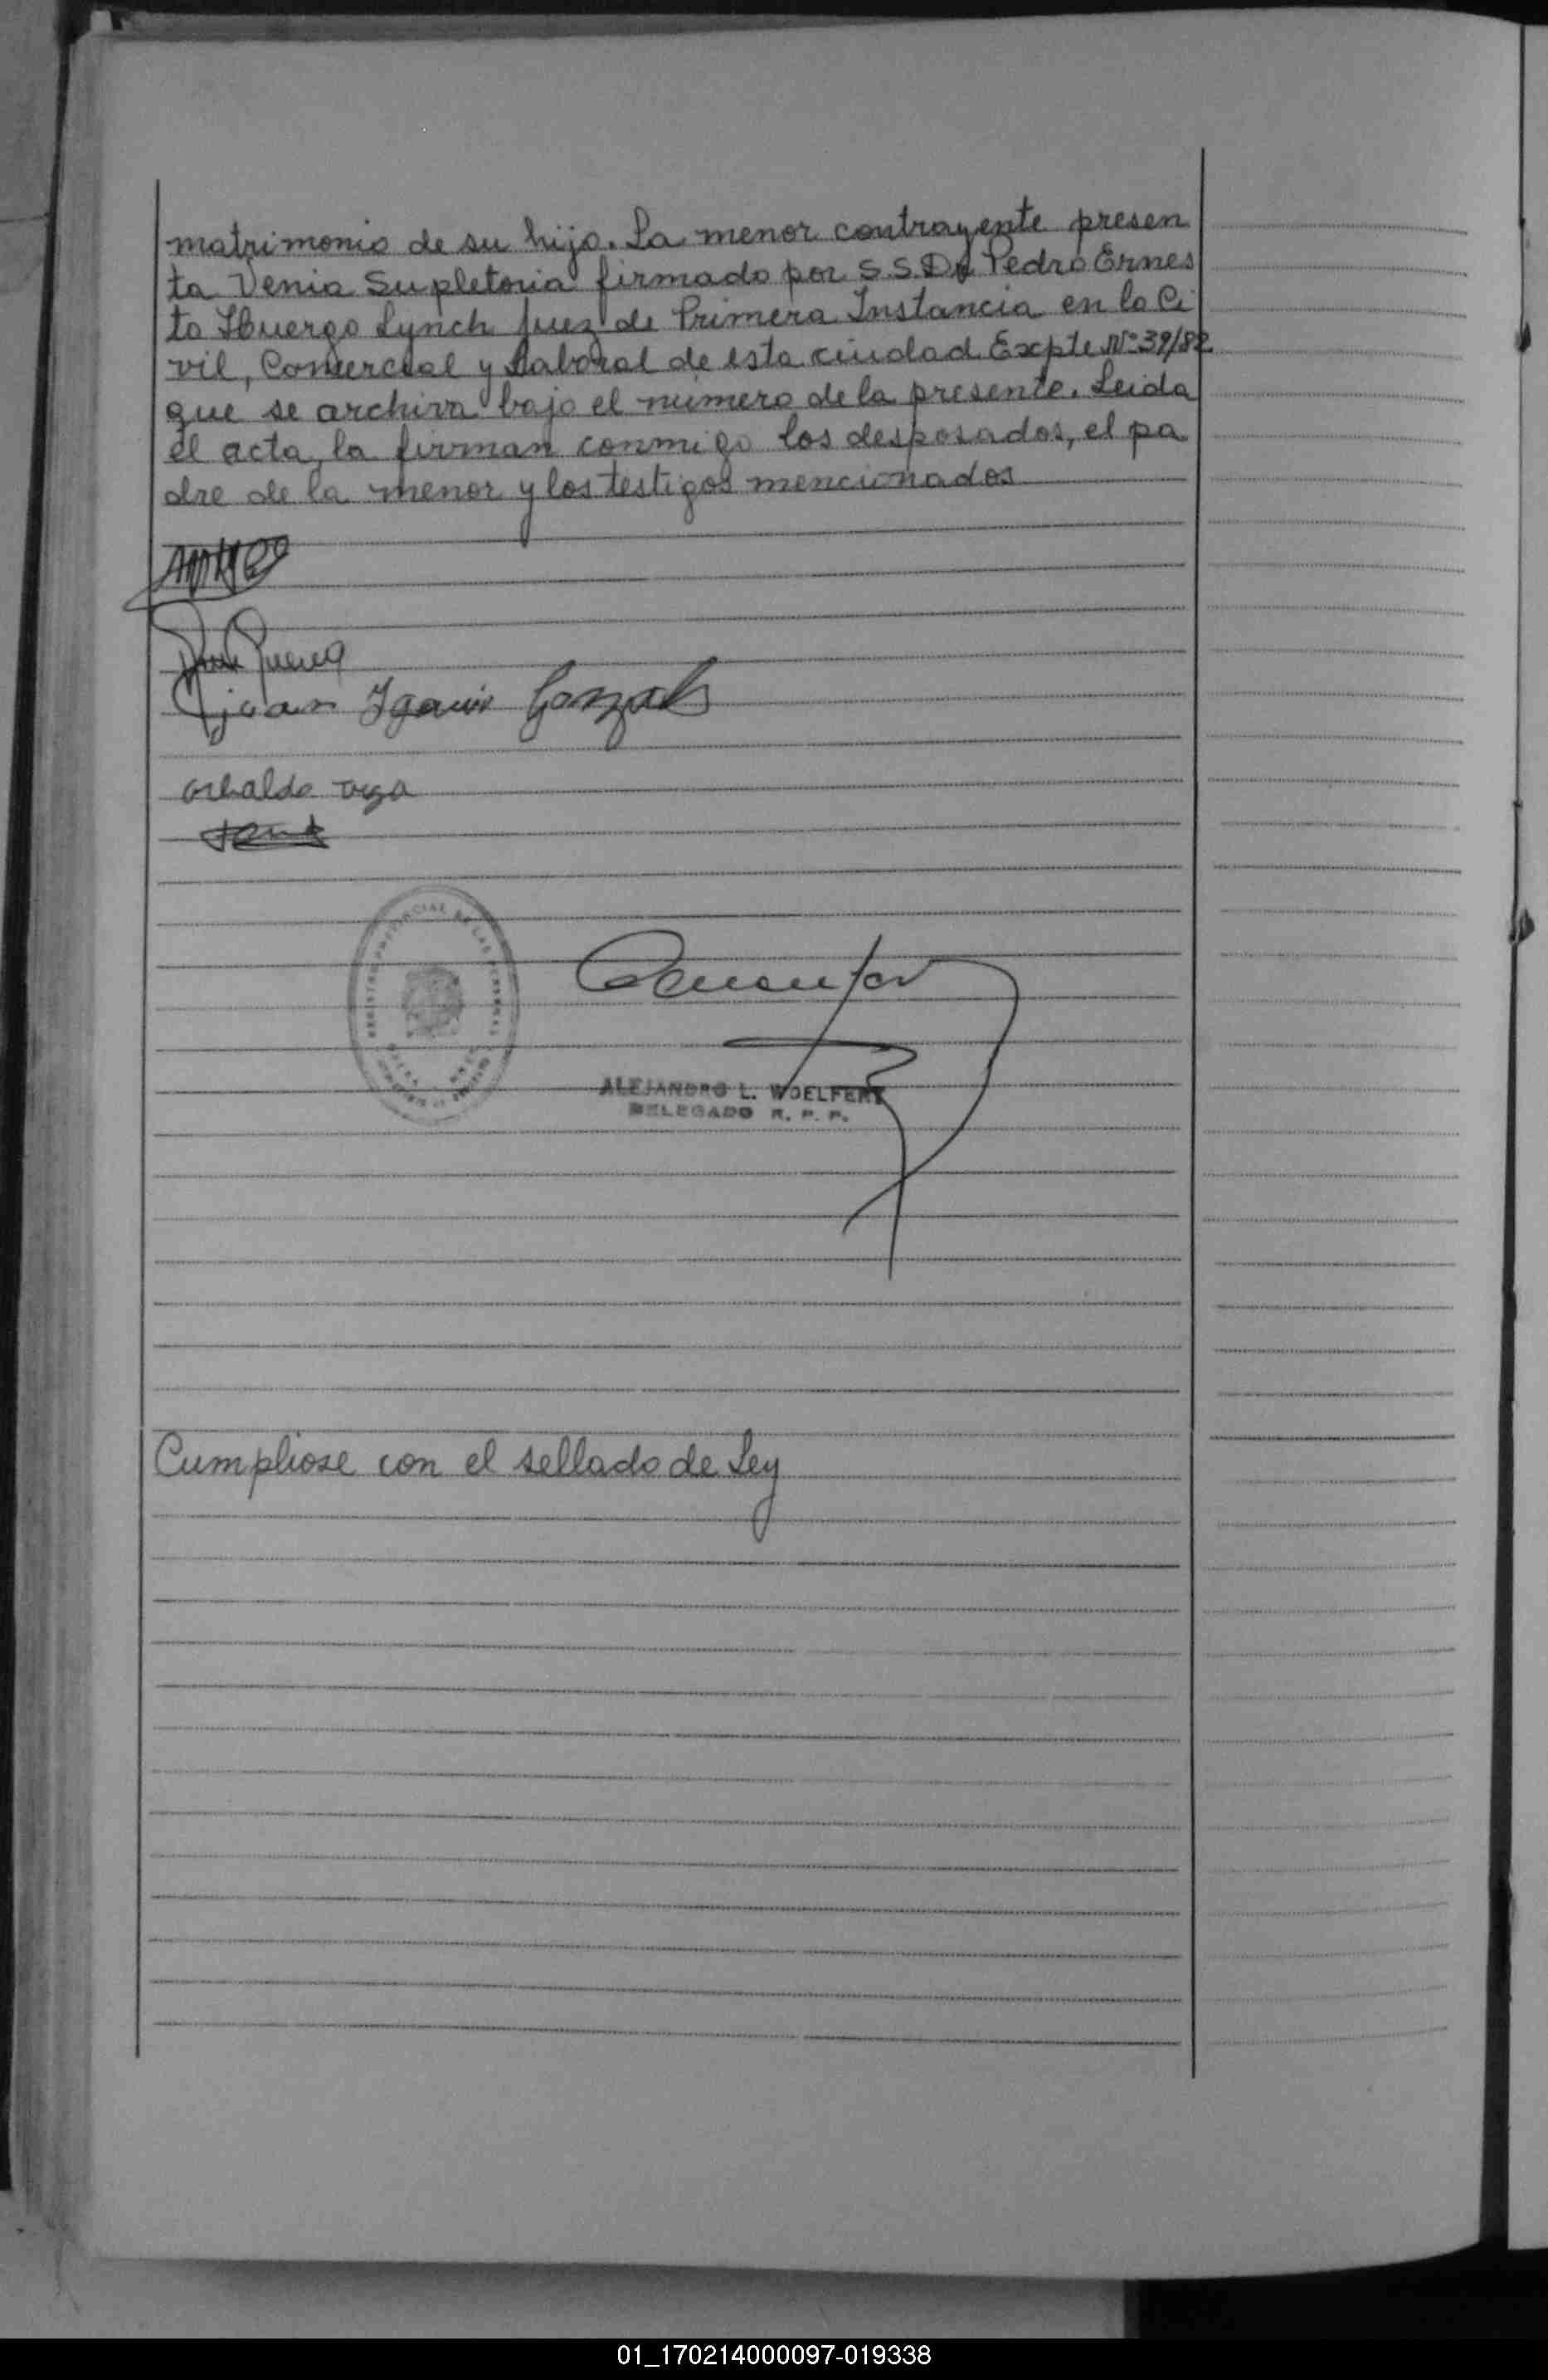 matrimonio de su hijo. La menor contrayente presen
ta Venia Supletoria firmado por S.S. Dr. Pedro Ernes
to Huergo Lynch Juez de Primera Instancia en lo Ci
vil, Comercial y Laboral de esta ciudad Expte Nº 39/82
que se archiva bajo el número de la presente. Leida
el acta, la firman conmigo los desposados, el pa
dre de la menor y los testigos mencionados
juan Ignacio Gonzalez
osbaldo vega
REGISTRO PROVINCIAL DE LAS PERSONAS
ALEJANDRO L. WOELFERT
DELEGADO R. P. P.
Cumpliose con el sellado de Ley
01_170214000097-019338